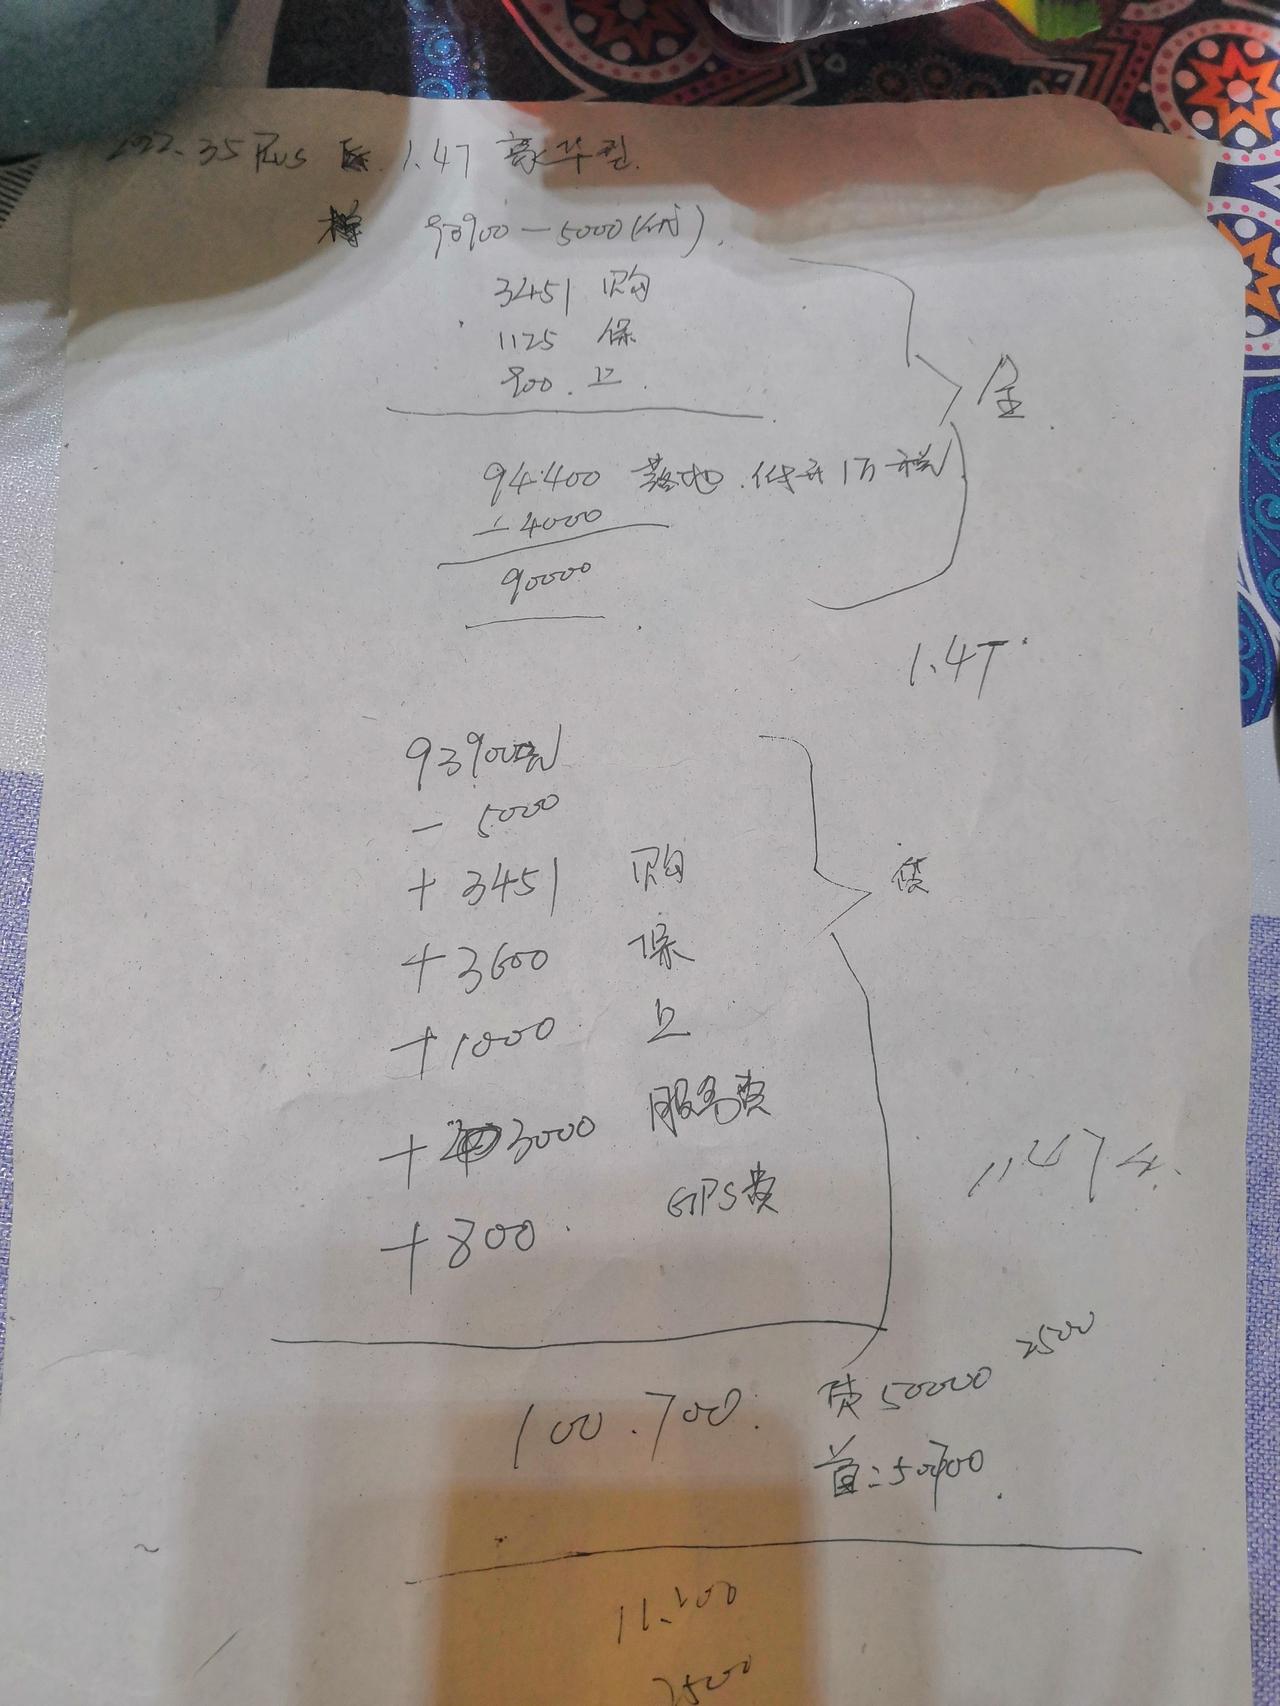 35 Plus 1.4T 豪华型
93900-5000(
3451 购
1125 保
900 上
全
94400 落地 低开1万税
-4000
90000
1.4T
93900
- 5000
+3451 购
+3600 保
贷
+1000 上
+3000 服务费
1.474
+800 GPS费
2500
100.700 贷50000
首:50700
11.200
2500